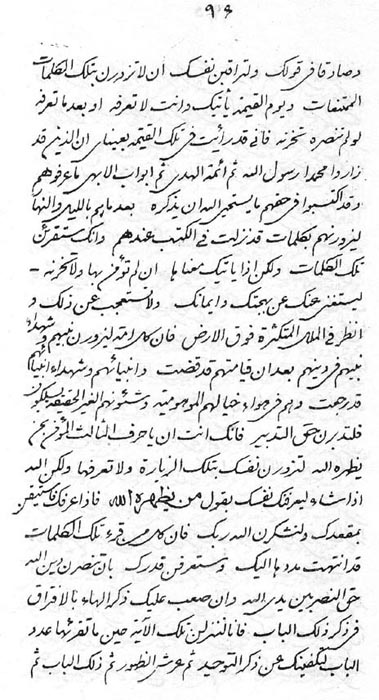 ٩٤
وصادقا فی قولک ولتراقبن نفسک ان لا تزورن بتلک الکلمات
الممتنعات ویوم القیمة یأتیک وانت لا تعرفه او بعد ما تعرفه
لو لم تنصره تحزنه فانی قد رأیت فی تلک القیمة بعینای ان الذین قد
زاروا محمدا رسول الله ثم ائمة الهدی ثم ابواب الابهی ما عرفوهم
وقد اکتسبوا فی حقهم ما یستحیی الله ان یذکره بعد ما هم باللیل والنهار
لیزورنهم بکلمات قد نزلت فی الکتب عندهم وانک ستقرئن
تلک الکلمات ولکن اذا یأتیک معناها ان لم تؤمن بها ولا تحزنه
لیستغنی عنک عن بهجتک وایمانک ولا تستعجب عن ذلک و
انظر فی الملل المتکثرة فوق الارض فان کل امة لیزورن نبیهم وشهداء
نبیهم فی دینهم بعد ان قیامتهم قد قضت وانبیائهم وشهداء انبیائهم
قد رجعت وهم فی هواء خیالهم الموهومیة وشئونهم الغیر الحقیقة یسلکون
فلتدبرن حق التدبیر فانک انت ان یا حرف الثالث المؤمن بمن
یظهره الله لتزورن نفسک بتلک الزیارة ولا تعرفها ولکن الله
اذا شاء لیعرفنک نفسک بقول من یظهره الله فاذا عرفک فاستیقن
بمقعدک ولتشکرن الله ربک فان کل من قرء تلک الکلمات
قد انتهت مددها الیک وستعرفن قدرک بان تنصرن دین الله
حق النصر بین یدی الله وان صعب علیک ذکر الهاء بالافراق
فی ذکر ذلک الباب فانا لننزلن تلک الآیة حین ما تقرئها عدد
الباب لیکفینک عن ذکر التوحید ثم عرش الظهور ثم ذلک الباب ثم